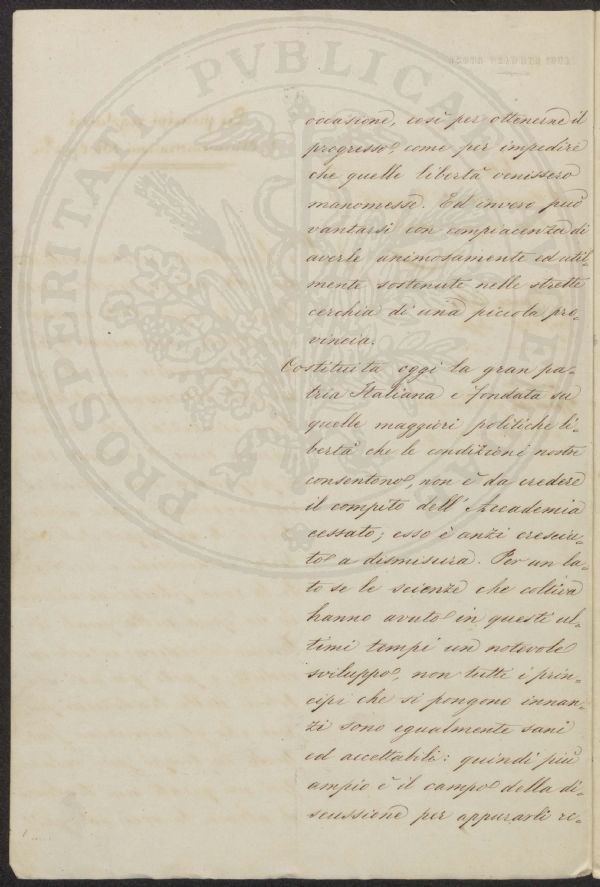 PROSPERITATI PVBLICAE
occasione, così per ottenerne il
progresso, come per impedire
che quelle libertà venissero
manomesse. Ed invero può
vantarsi con compiacenza di
averle animosamente ed util-
mente sostenute nelle strette
cerchia di una piccola pro-
vincia.
Costituita oggi la gran pa-
tria Italiana e fondata su
quelle maggiori politiche li-
bertà che le condizioni nostre
consentono, non è da credere
il compito dell'Accademia
cessato; esso è anzi cresciu-
to a dismisura. Per un la-
to se le scienze che coltiva
hanno avuto in questi ul-
timi tempi un notevole
sviluppo, non tutti i prin-
cipi che si pongono innan-
zi sono egualmente sani
ed accettabili: quindi più
ampio è il campo della di-
scussione per appurarli re-